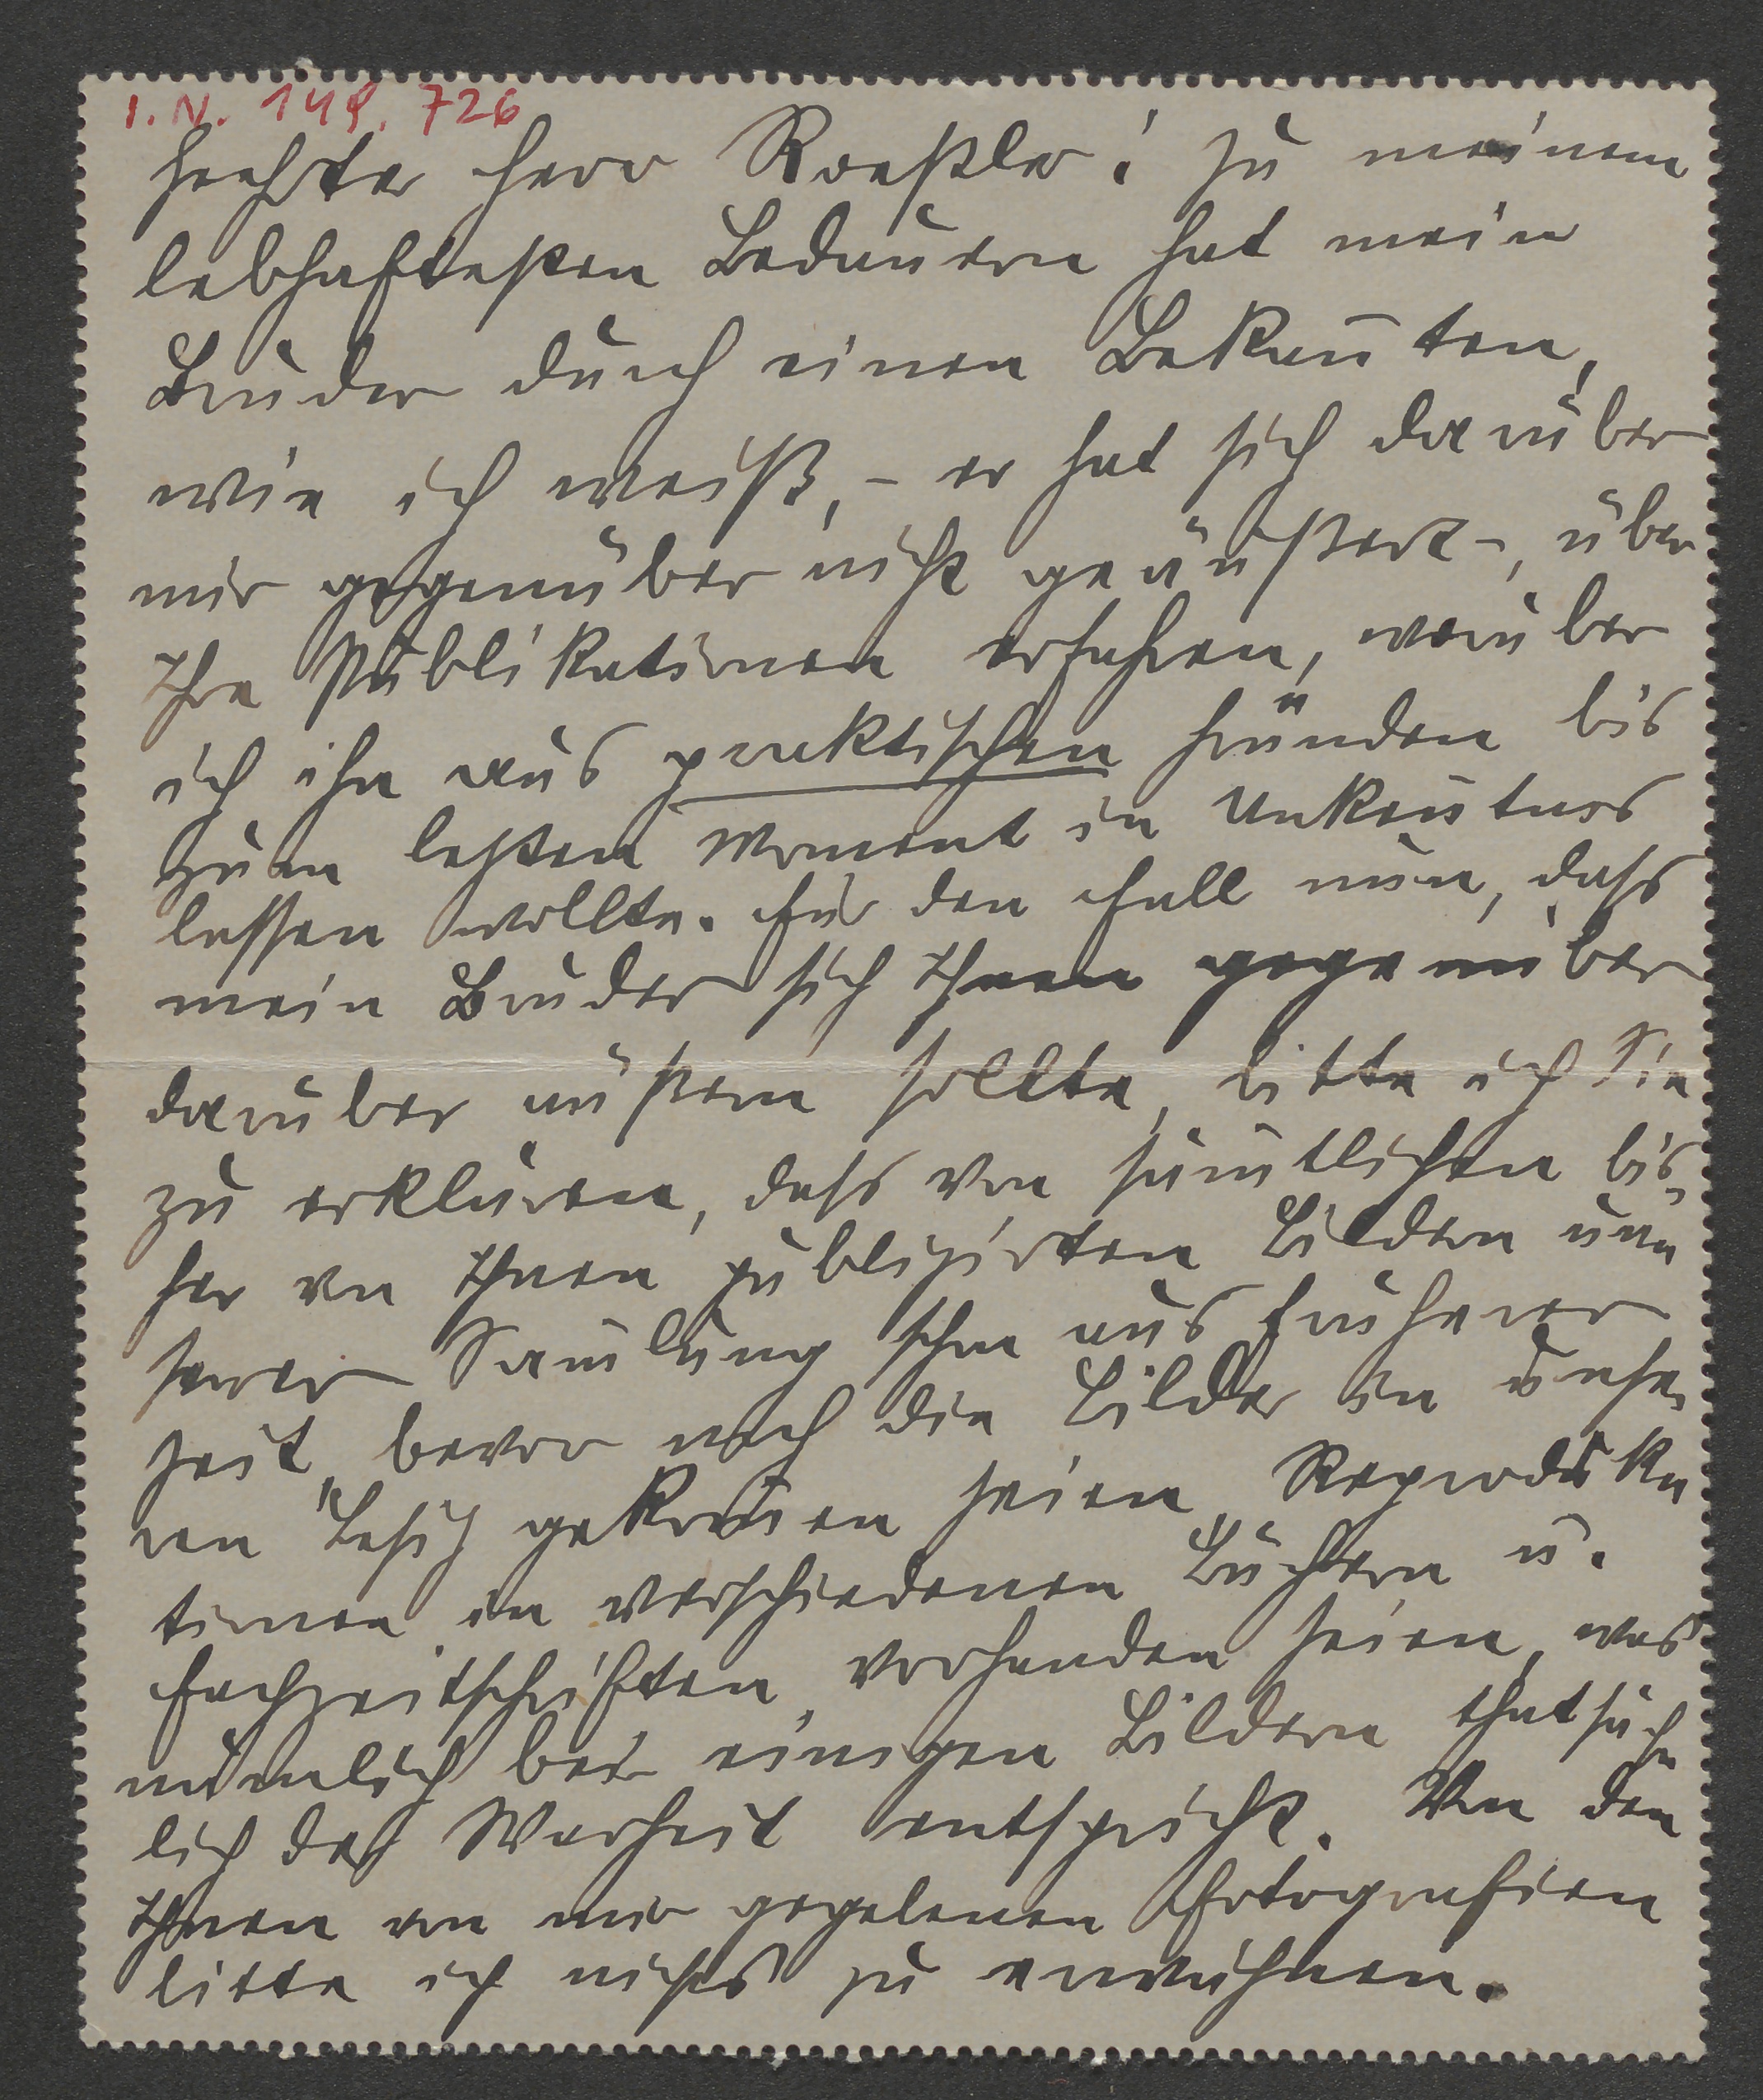 I.N. 149.726
Geehrter Herr Roeßler! Zu meinem
lebhaftesten Bedauern hat mein
Bruder durch einen Bekan̅ten,
wie ich weiß, – er hat sich darüber
mir gegenüber nicht geäußert –, über
Ihre Publikationen erfahren, worüber
ich ihn aus praktischen Gründen bis
zum letzten Moment in Unken̅tnis
lassen wollte. Für den Fall nun, dass
mein Bruder sich Ihnen gegenüber
darüber äußern sollte, bitte ich Sie
zu erklären, dass von säm̅tlichen bis-
her von Ihnen publizirten Bildern un-
serer Sam̅lung schon aus früherer
Zeit, bevor noch die Bilder in unse-
ren Besitz gekom̅en seien, Reproduk-
tionen in verschiedenen Büchern u.
Fachzeitschriften vorhanden seien, was
nämlich bei einigen Bildern thatsäch-
lich der Warheit entspricht. Von den
Ihnen von mir gegebenen Fotografien
bitte ich nichts zu erwähnen.